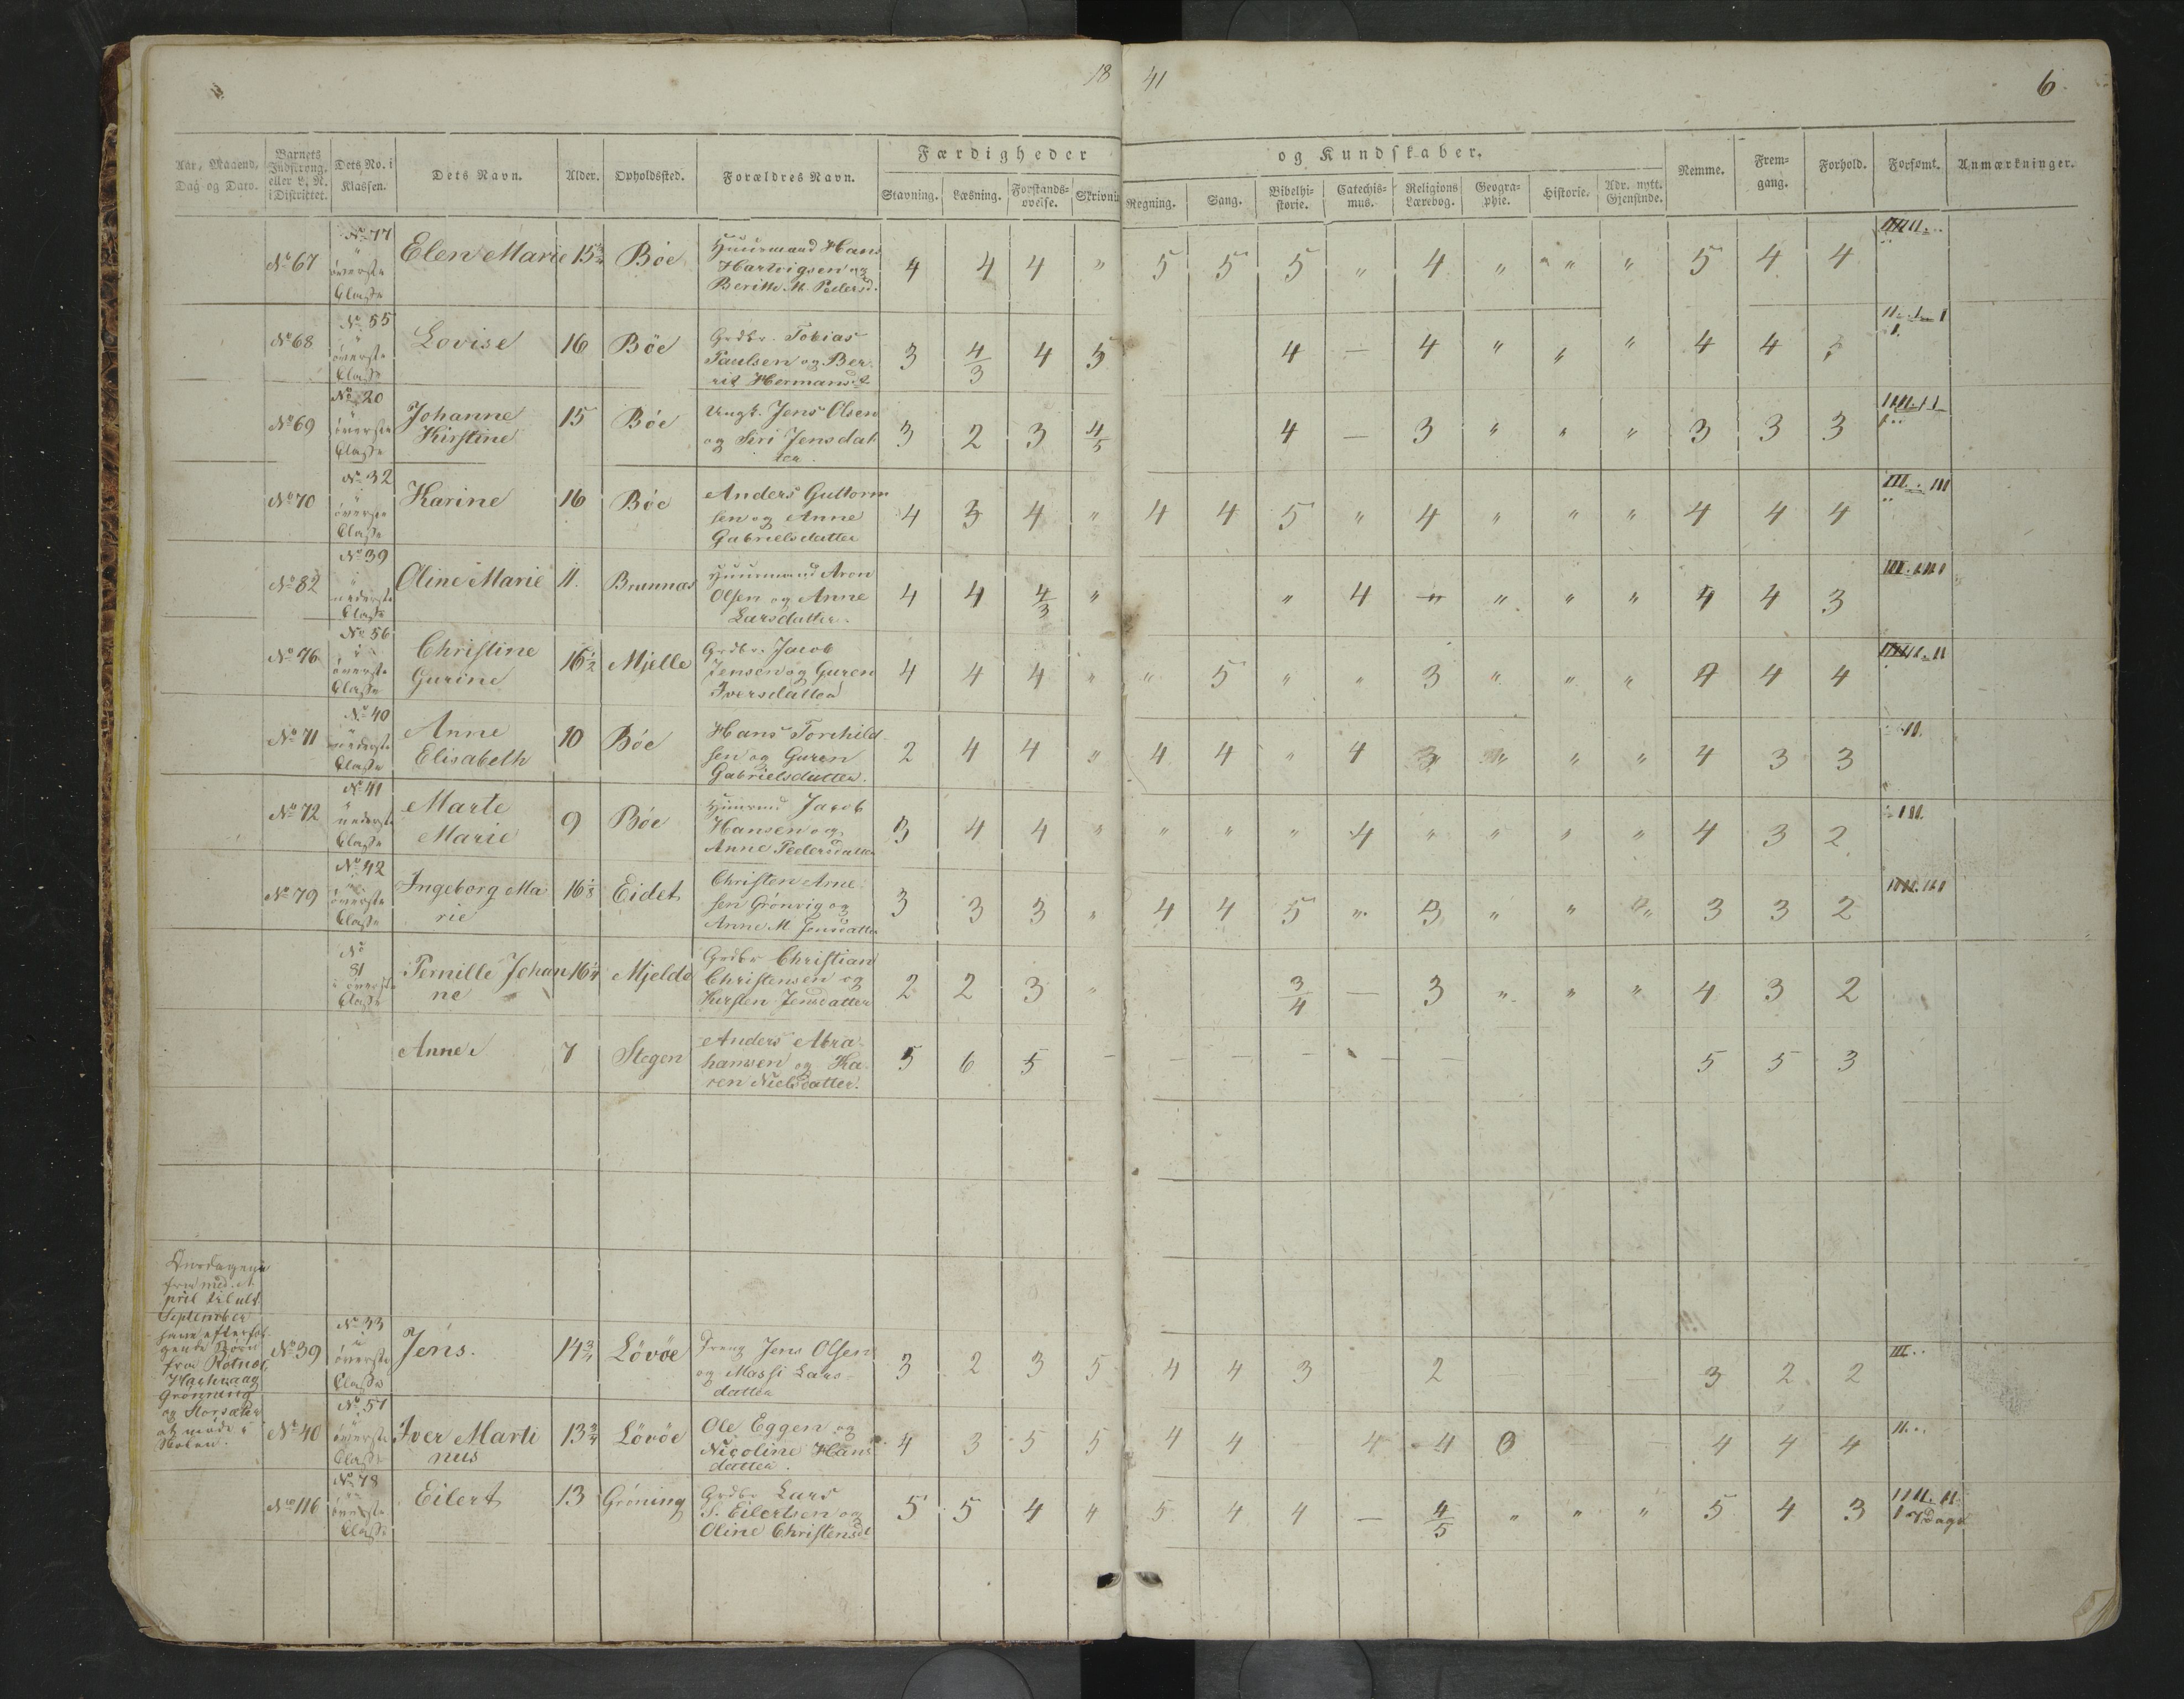 18 41
6.
Færdigheder og Kundskaber.
Aar, Maaned, Dag og Dato. | Barnets Indskrivn. eller L. N. i Distriktet. | Dets No. i Klassen. | Dets Navn. | Alder. | Opholdssted. | Forældres Navn. | Stavning. | Læsning. | Forstands-øvelse. | Skrivnin | Regning. | Sang. | Bibelhi-storie. | Catechis-mus. | Religions Lærebog. | Geogra-phie. | Historie. | Adr. nytt. Gjenstnde. | Nemme. | Frem-gang. | Forhold. | Forsømt. | Anmærkninger.
No 67 | No 77 i överste Classe | Elen Marie | 15 | Böe | Huusmand Hans Hartvigsen og Beritte M. Pedersd. | 4 | 4 | 4 | " | 5 | 5 | 5 | " | 4 | " | " | " | 5 | 4 | 4
No 68 | No 55 i överste Classe | Lovise | 16 | Böe | Grdbr. Tobias Paulsen og Ber-rit Hermansd. | 3 | 4/3 | 4 | 5 | 4 | — | 4 | " | " | " | 4 | 4
No 69 | No 20 i överste Classe | Johanne Kirstine | 15 | Böe | Ungk. Jens Olsen og Siri Jensdat ter. | 3 | 2 | 3 | 4/5 | 4 | — | 3 | " | " | " | 3 | 3 | 3
No 70 | No 32 i överste Classe | Karine | 16 | Böe | Anders Guttorm sen og Anne Gabrielsdatter | 4 | 3 | 4 | " | 4 | 4 | 5 | " | 4 | " | " | " | 4 | 4 | 4 | III. . III
No 82 | No 39 i nederste Classe | Oline Marie | 11. | Brunnæs | Huusmand Aron Olsen og Anne Larsdatter. | 4 | 4 | 4/3 | " | " | 4 | " | " | " | " | 4 | 4 | 3 | III. III
No 96 | No 56 i överste Classe | Christine Gurine | 16 1/2 | Mjelle | Grdbr. Jacob Jensen og Guren Iversdatter | 4 | 4 | 4 | " | " | 5 | " | " | 3 | " | " | " | 4 | 4 | 4
No 71 | No 40 i nederste Classe | Anne Elisabeth | 10 | Böe | Hans Torchild sen og Guren Gabrielsdatter. | 2 | 4 | 4 | " | 4 | 4 | " | 4 | 3 | " | " | " | 4 | 3 | 3 | II.
No 72 | No 41 i nederste Classe | Marte Marie | 9 | Böe | Huusmd Jacob Hansen og Anne Pedersdatter | 3 | 4 | 4 | " | " | " | " | 4 | " | " | " | " | 4 | 3 | 2 | III.
No 79 | No 42 i överste Classe | Ingeborg Ma rie | 16 1/8 | Eidet | Christen Arne sen Grönvig og Anne M Jensdatter | 3 | 3 | 3 | " | 4 | 4 | 5 | " | 3 | " | " | " | 3 | 3 | 2
No 81 i överste Classe | Pernille Johan ne | 16 1/4 | Mjelde | Grdbr Christian Christensen og Kirsten Jensdatter | 2 | 2 | 3 | " | 3/4 | — | 3 | " | " | " | 4 | 3 | 2
Anne | 7 | Stegen | Anders Abra-hamsen og Ka-ren Nielsdatter. | 5 | 6 | 5 | – | – | – | – | – | – | – | 5 | 5 | 3
Onsdagene
fra med. A
pril til ult.
September
have efterföl
gende Börn
fra
Grönning
og Storsæter
at möde i
Skolen.
No 39 | No 33 i överste Classe | Jens. | 14 3/4 | Lövöe | Dreng Jens Olsen og Massi Lars-datter | 3 | 2 | 3 | 5 | 4 | 4 | 3 | 2 | — | 3 | 2 | 2 | III..
No 40 | No 51 i överste Classe | Iver Marti nus | 13 3/4 | Lövöe | Ole Eggen og Nicoline Hans datter. | 4 | 3 | 5 | 5 | 4 | 4 | — | 4 | 4 | 0 | — | 4 | 4 | 4 | II..
No 116 | No 78 i överste Classe | Eilert | 13 | Gröning | Grdbr Lars S. Eilertsen og Oline Christensd | 5 | 5 | 4 | " | 5 | 4 | 4 | — | 4/5 | " | " | " | 5 | 4 | 3 | IIII. II. I 7 Dage